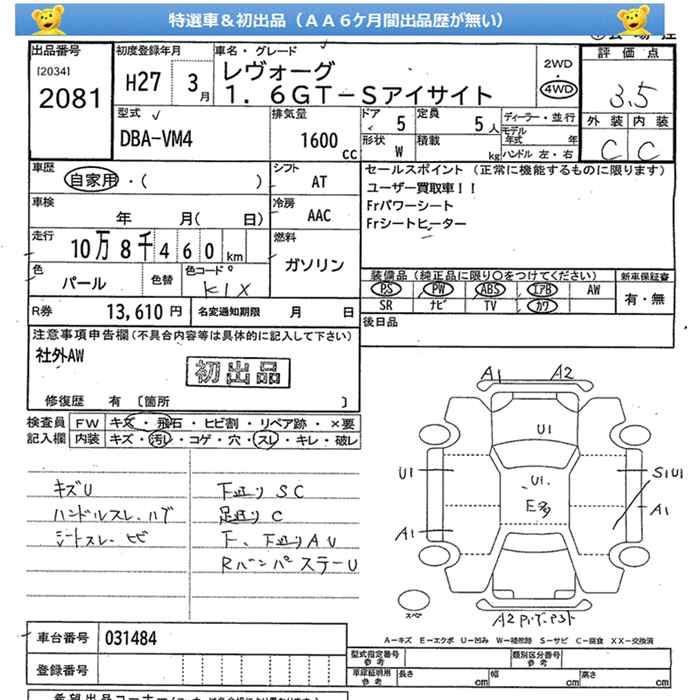 特選車＆初出品（ＡＡ６ケ月間出品歴が無い）
出品番号
[2034]
2081
初度登録年月
H27 3月
車名・グレード
レヴォーグ
1．6GT－Sアイサイト
2WD
・
4WD
評価点
3.5
外装 内装
C C
型式
DBA-VM4
排気量
1600
cc
ドア 5
定員 5人
形状 W
積載 kg
ディーラー・並行
モデル年式 年
ハンドル 左・右
車歴
自家用・( )
シフト
AT
車検
年 月( 日)
冷房
AAC
走行
10万8千460km
燃料
ガソリン
色
パール
色替
色コード
K1X
R券 13,610円
名変通知期限 月 日
セールスポイント（正常に機能するものに限ります）
ユーザー買取車！！
Frパワーシート
Frシートヒーター
装備品（純正品に限り○をつけてください）
PS PW ABS エアB AW
SR ナビ TV カワ
新車保証書
有・無
後日品
注意事項申告欄(不具合内容等は具体的に記入して下さい)
社外AW
初出品
修復歴 有 〔箇所 〕
検査員
記入欄
FW キズ・飛石・ヒビ割・リペア跡・×要
内装 キズ・汚レ・コゲ・穴・スレ・キレ・破レ
キズU
ハンドルスレ、ハゲ
シートスレ、ヒビ
下廻り SC
足廻り C
F、下廻り A U
Rバンパステー U
A1 A2
U1
U1 U1 S1U1
E多
A1 A1
スペア
A2
A－キズ E－エクボ U－凹み W－補修跡 S－サビ C－腐食 XX－交換済
車台番号 031484
登録番号
型式指定番号
参考
類別区分番号
参考
車庫証明用
参考
長さ cm 幅 cm 高さ cm